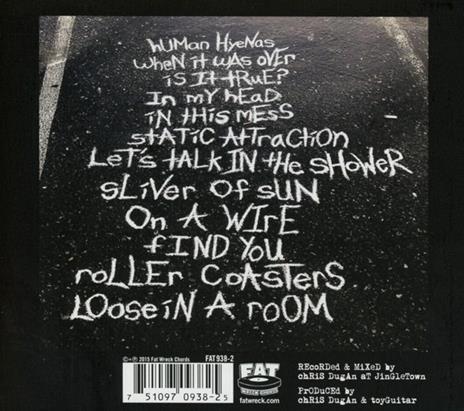 HUMAN HYENAS
WHEN IT WAS OVER
IS IT TRUE?
IN MY HEAD
IN THIS MESS
STATIC ATTRACTION
LET'S TALK IN THE SHOWER
SLIVER OF SUN
ON A WIRE
FIND YOU
ROLLER COASTERS
LOOSE IN A ROOM
©+℗ 2015 Fat Wreck Chords FAT938-2
7 51097 0938-2 5
FAT
WRECK CHORDS
fatwreck.com
REcoRDed & MiXeD by
chRiS DugAn aT JinGleTown
PrODuCeD by
chRiS DugAn & toyGuitar